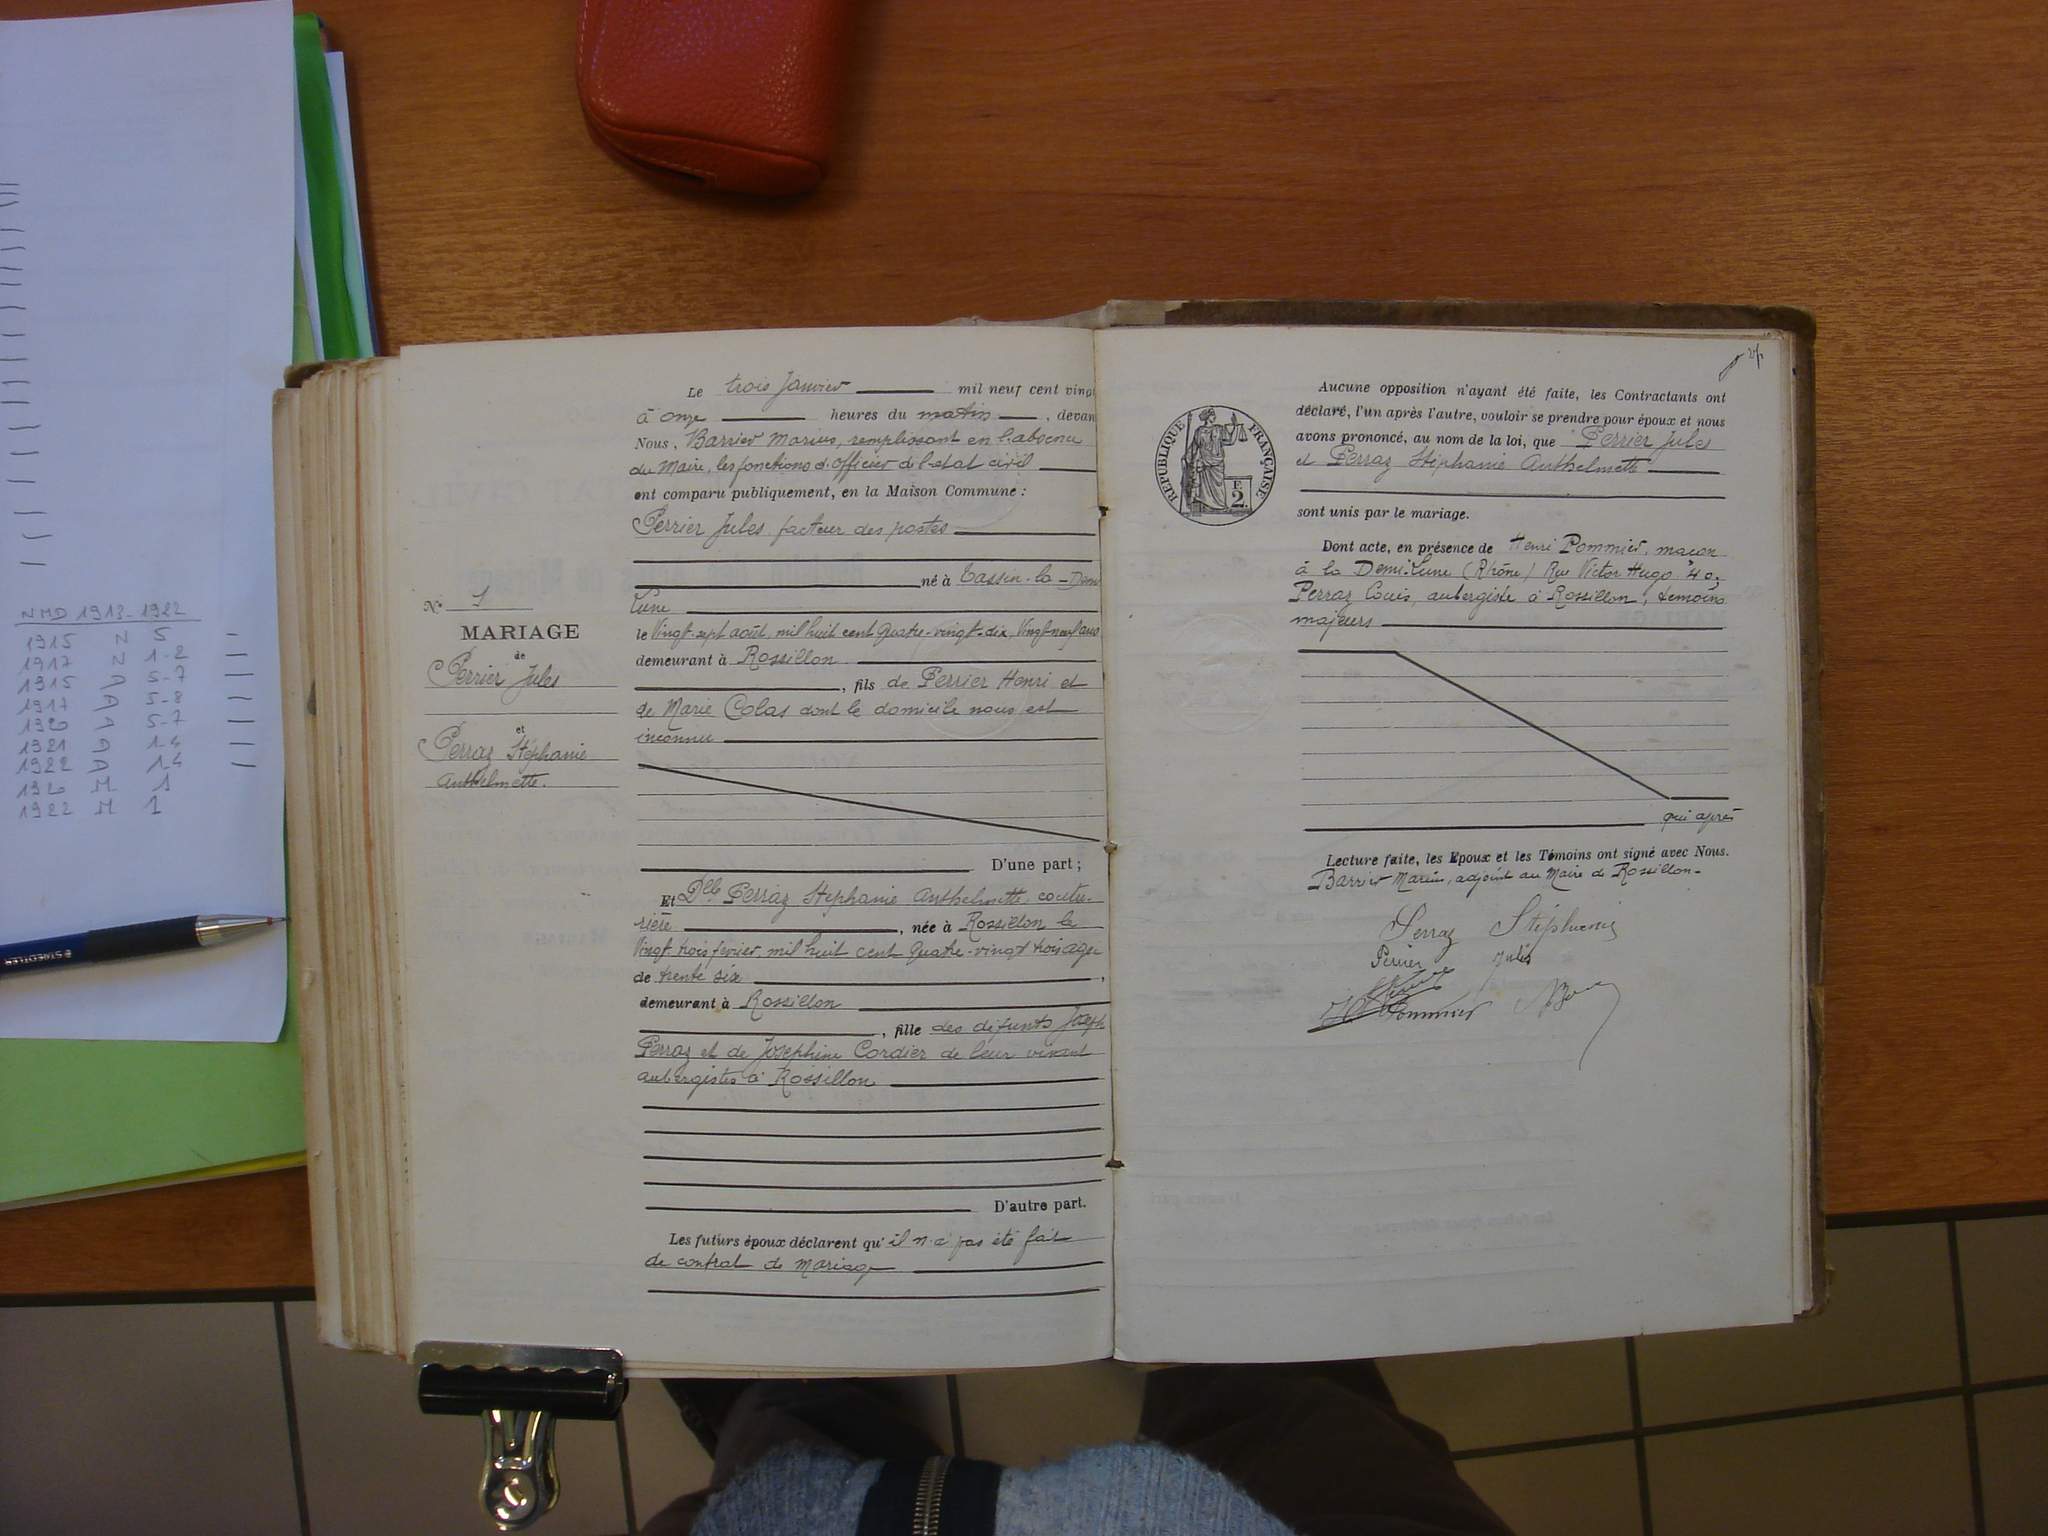 NMD 1913-1922
1915 N 5
1917 N 1-2
1915 A 5-7
1917 A 5-8
1920 A 5-7
1921 D 1-4
1922 A 1-4
1920 M 1
1922 M 1
STAEDTLER
N° 1
MARIAGE
de
Perrier Jules
et
Perraz Stéphanie
Anthelmette.
Le trois Janvier mil neuf cent vingt
à onze heures du matin, devan
Nous, Barrier Marius, remplissant en l'absence
du Maire, les fonctions d'officier de l'état civil
ont comparu publiquement, en la Maison Commune :
Perrier Jules, facteur des postes
né à Tassin-la-Demi
Lune
le Vingt-sept août, mil huit cent Quatre-vingt-dix, Vingt-neuf ans
demeurant à Rossillon
, fils de Perrier Henri et
de Marie Colas dont le domicile nous est
inconnu
D'une part ;
Et Dlle Perraz Stéphanie Anthelmette, coutu-
rière, née à Rossillon le
Vingt-trois février, mil huit cent Quatre-vingt trois agée
de trente six
demeurant à Rossillon
, fille des défunts Joseph
Perraz et de Joséphine Cordier de leur vivant
aubergistes à Rossillon
D'autre part.
Les futurs époux déclarent qu'il n'a pas été fait
de contrat de mariage
RÉPUBLIQUE FRANÇAISE
F.
2.
Aucune opposition n'ayant été faite, les Contractants ont
déclaré, l'un après l'autre, vouloir se prendre pour époux et nous
avons prononcé, au nom de la loi, que Perrier Jules
et Perraz Stéphanie Anthelmette
sont unis par le mariage.
Dont acte, en présence de Henri Pommier, maçon
à la Demi-Lune (Rhône) Rue Victor Hugo 40;
Perraz Louis, aubergiste à Rossillon, témoins
majeurs
qui après
Lecture faite, les Epoux et les Témoins ont signé avec Nous.
Barrier Marius, adjoint au Maire de Rossillon-
Perraz Stéphanie
Perrier Jules
H Pommier